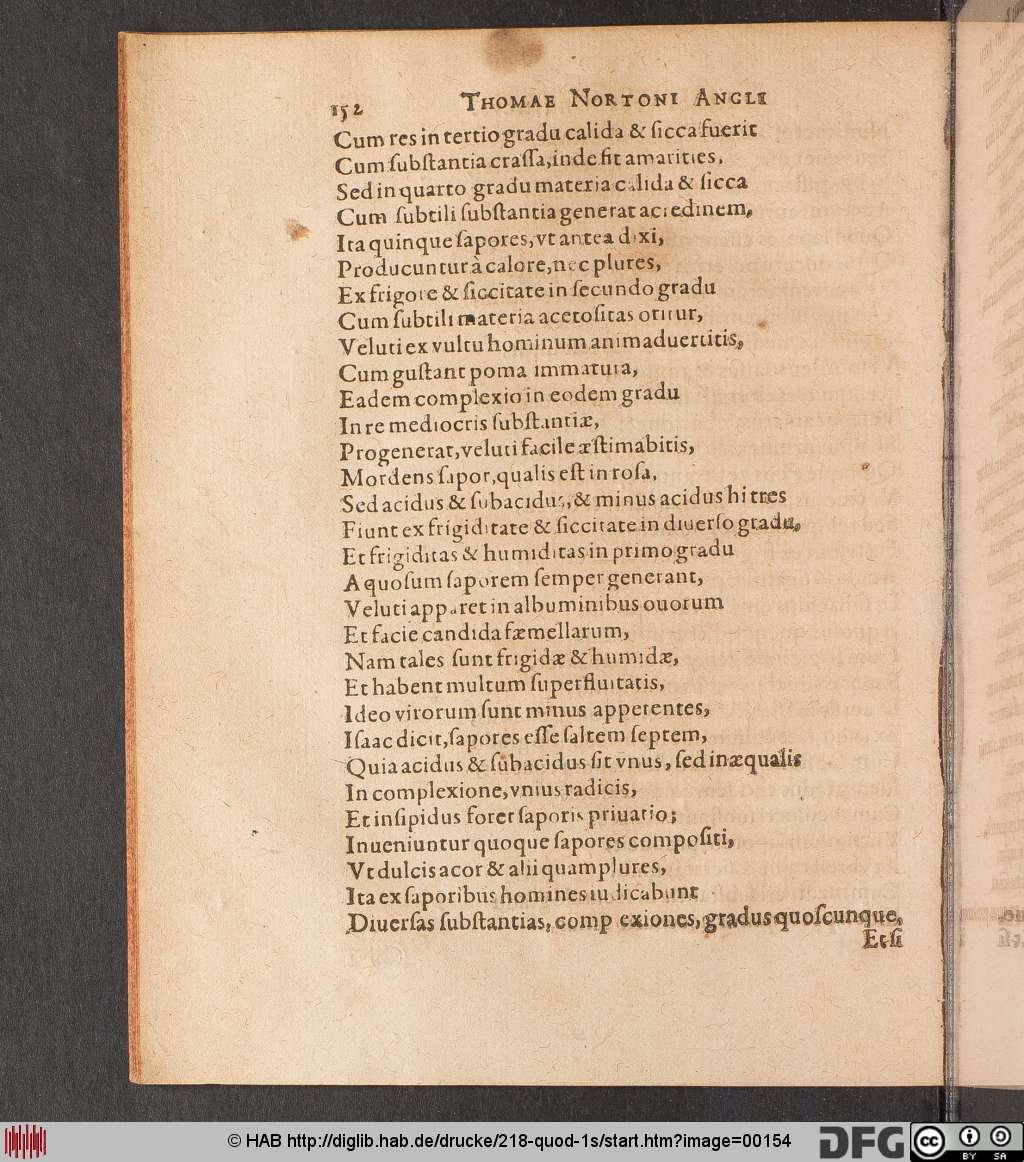 152 THOMAE NORTONI ANGLI
Cum res in tertio gradu calida & ſicca fuerit
Cum ſubſtantia craſſa, inde fit amarities,
Sed in quarto gradu materia calida & ſicca
Cum ſubtili ſubſtantia generat acredinem,
Ita quinque ſapores, vt antea dixi,
Producuntur à calore, nec plures,
Ex frigore & ſiccitate in ſecundo gradu
Cum ſubtili materia acetoſitas oritur,
Veluti ex vultu hominum animaduertitis,
Cum guſtant poma immatura,
Eadem complexio in eodem gradu
In re mediocris ſubſtantiæ,
Progenerat, veluti facile æſtimabitis,
Mordens ſapor, qualis eſt in roſa,
Sed acidus & ſubacidus, & minus acidus hi tres
Fiunt ex frigiditate & ſiccitate in diuerſo gradu,
Et frigiditas & humiditas in primo gradu
Aquoſum ſaporem ſemper generant,
Veluti apparet in albuminibus ouorum
Et facie candida fæmellarum,
Nam tales ſunt frigidæ & humidæ,
Et habent multum ſuperfluitatis,
Ideo virorum ſunt minus appetentes,
Iſaac dicit, ſapores eſſe ſaltem ſeptem,
Quia acidus & ſubacidus ſit vnus, ſed inæqualis
In complexione, vnius radicis,
Et inſipidus foret ſaporis priuatio;
Inueniuntur quoque ſapores compoſiti,
Vt dulcis acor & alii quamplures,
Ita ex ſaporibus homines iudicabunt
Diuerſas ſubſtantias, comp exiones, gradus quoſcunque,
Et ſi
© HAB http://diglib.hab.de/drucke/218-quod-1s/start.htm?image=00154
DFG
cc BY SA